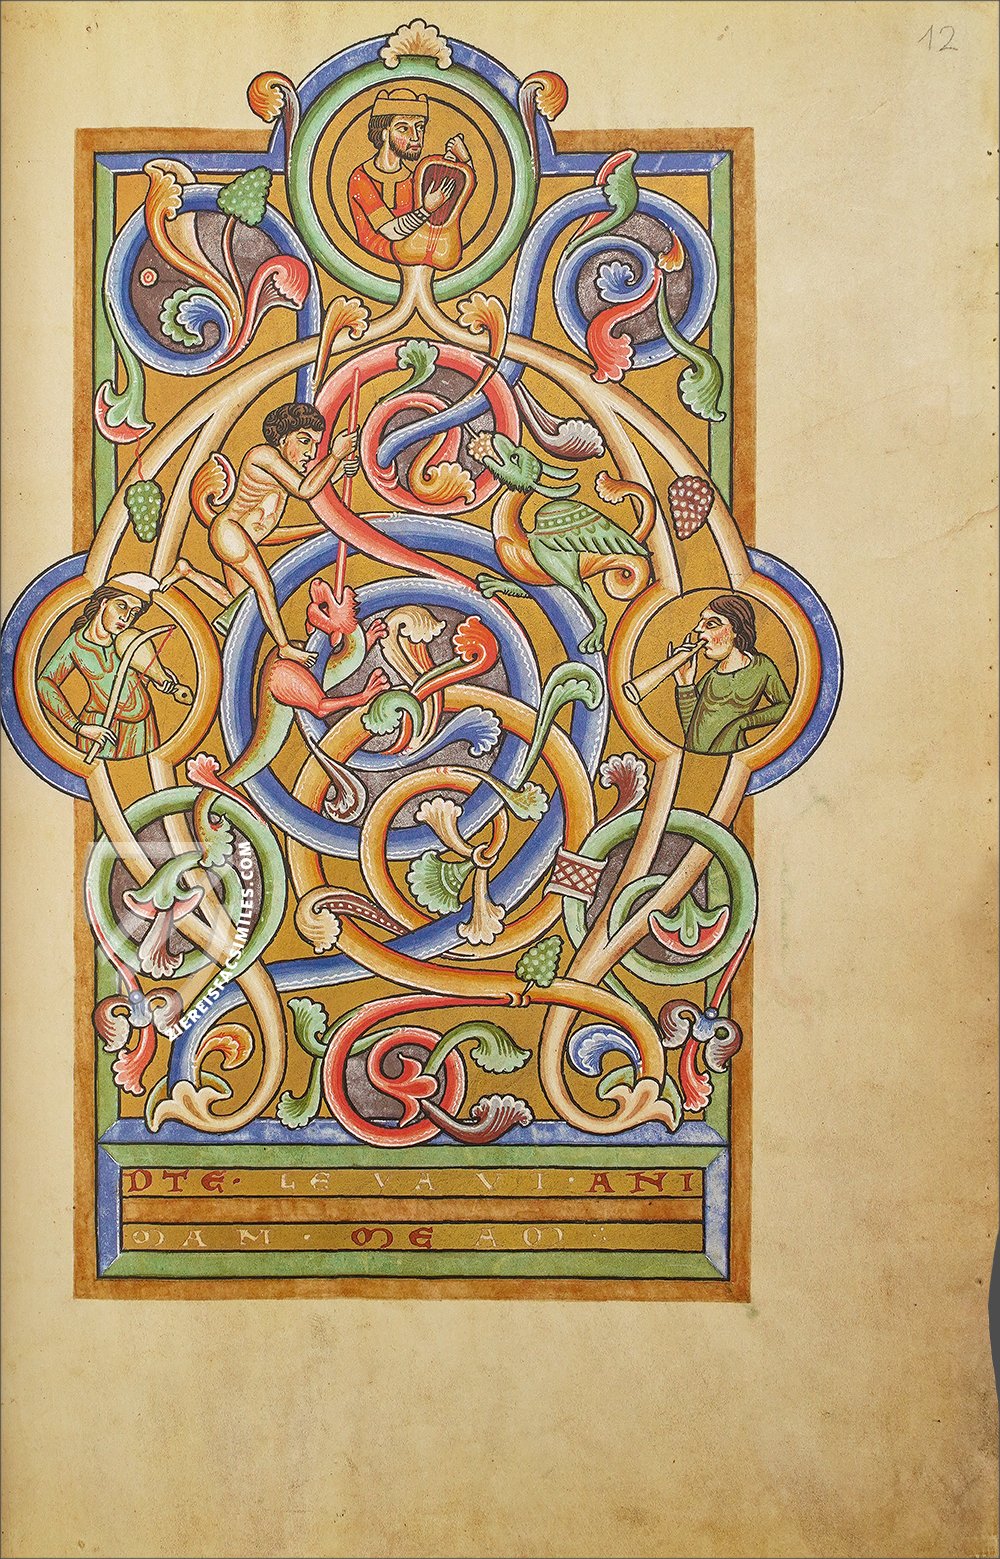 12
DTE· LEVAVI· ANI
MAM · MEAM :
ZIEREISFACSIMILES.COM